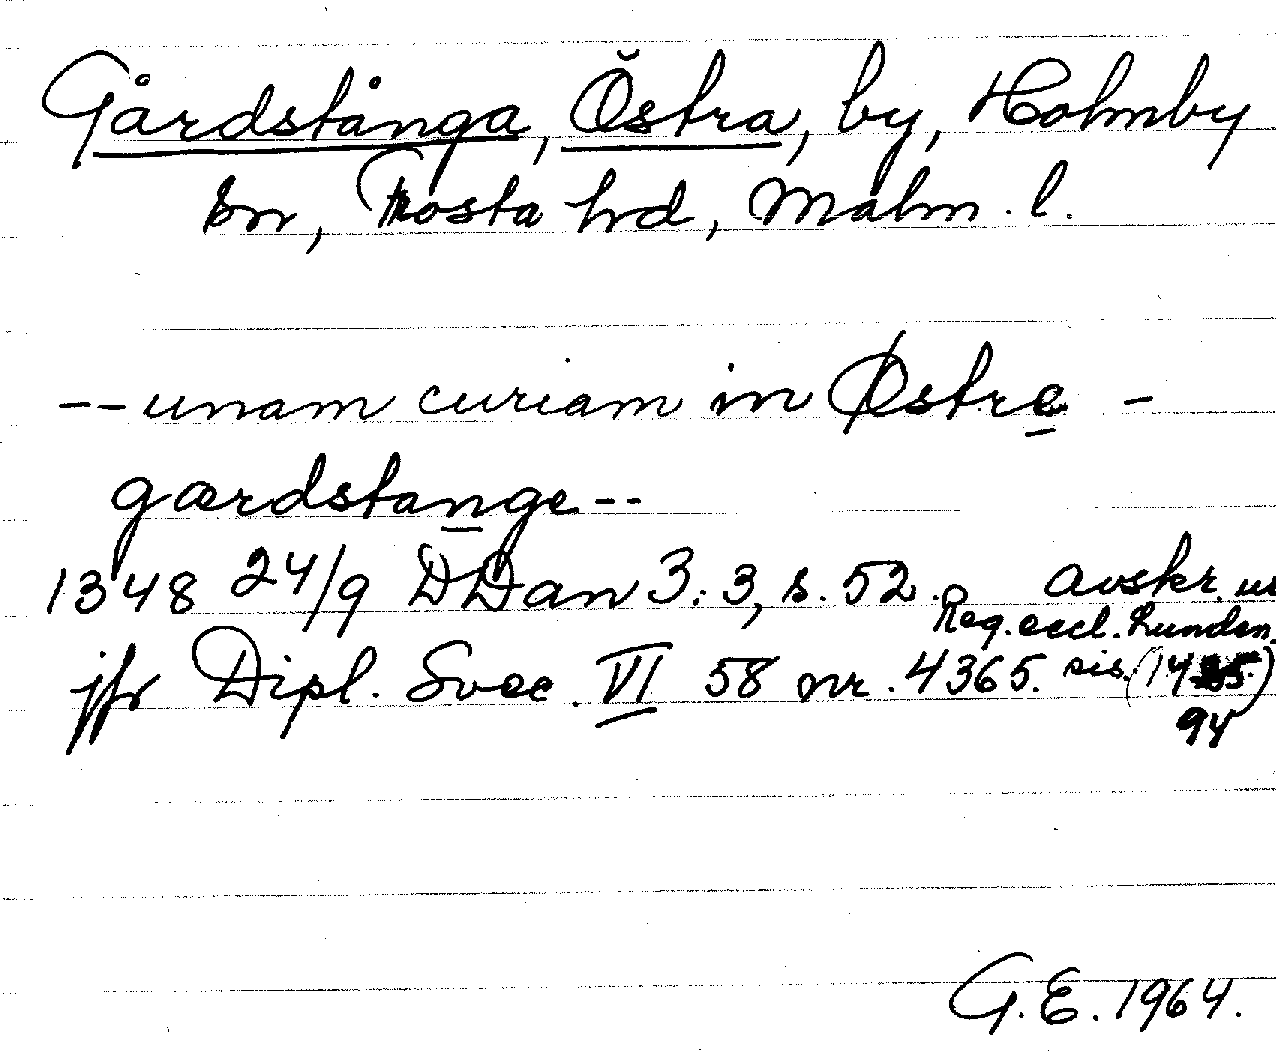 Gårdstånga, Östra, by, Holmby
sn, Frosta hd, Malm. l.
-- unam curiam in Østre -
gærdstange --
1348 24/9 DDan 3:3, s. 52. avskr. ur
Reg. eccl. Lunden.
jfr Dipl. Svec. VI 58 nr. 4365. sis. (14
94
G.E. 1964.